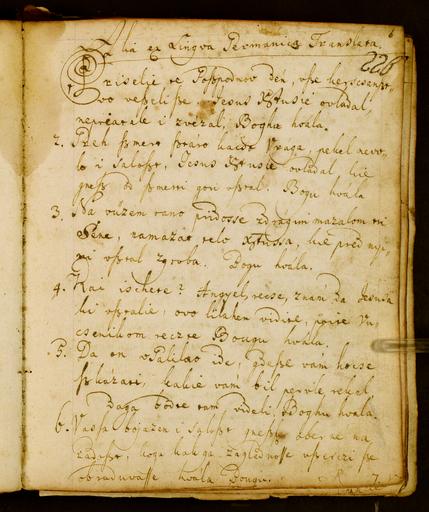 Alia ex Lingva Germanica Translata.
226
Priselie te Poszpodnov den, vsze kerscsanszt
vo veszeli sze Jesus Xtusse ovladal,
nepriatele i zvezal, Boghu hvala.
2. Czeh szmert sztaro kacso vraga, pekel nevo
lo i saloszt, Jesus Xtusse ovladal, kie
gnesz od szmerti gori vsztal. Bogu hvala
3. Na vuzem rano pridosse z dragim mazalom tri
Sene, namazat telo Xtussa, kie pred nyi
mi vsztal z groba. Bogu hvala.
4. Kai ischete? Angyel, recse, znam da Jesussa
ki vsztalie, ovo lilahen vidite, poite vu
csenikom reczte Bougu hvala.
5. Da on v Galilao ide, gdesze vam hocse
szkazati, kakie vam bil pervle rekel
Daga bodte tam videli, Boghu hvala.
6. Vassa bojazen i saloszt gneszu oberne na
radoszt, koga kak ga zaglednosse vszerczi sze
obraduvasse hvala Bougu.